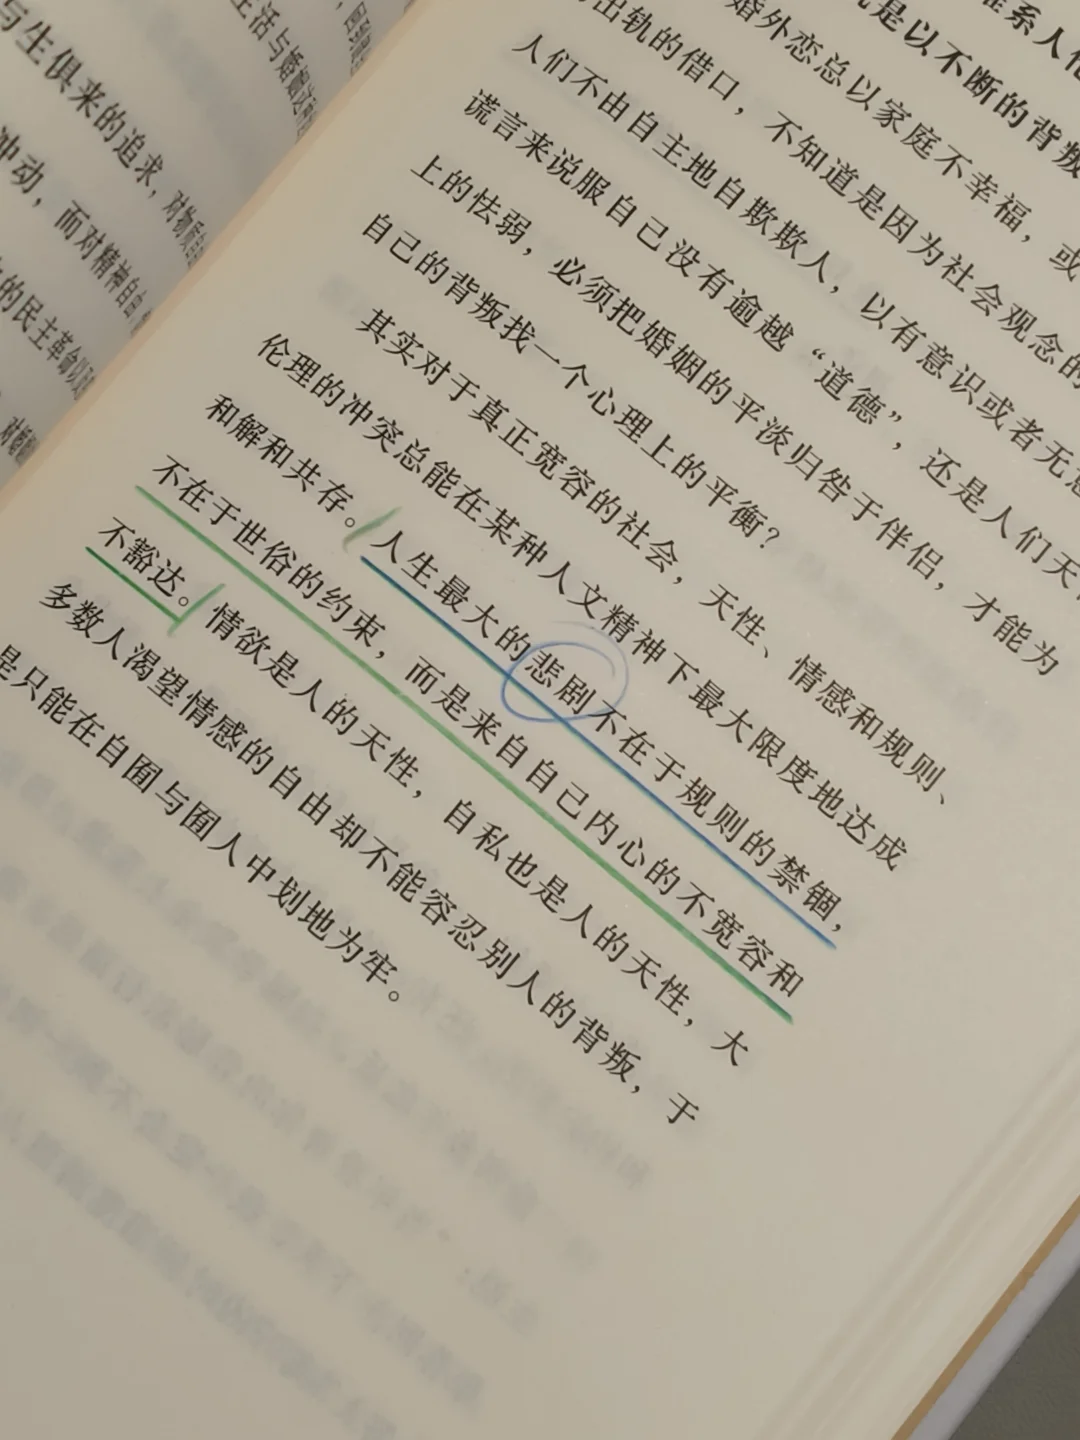 与生俱来的追求，对物质
冲动，而对精神自由
的民主革命以及
生活与婚姻达到
系人
是以不断的背叛
婚外恋总以家庭不幸福，或
出轨的借口，不知道是因为社会观念的
人们不由自主地自欺欺人，以有意识或者无意
谎言来说服自己没有逾越“道德”，还是人们天
上的怯弱，必须把婚姻的平淡归咎于伴侣，才能为
自己的背叛找一个心理上的平衡？
其实对于真正宽容的社会，天性、情感和规则、
伦理的冲突总能在某种人文精神下最大限度地达成
和解和共存。人生最大的悲剧不在于规则的禁锢，
不在于世俗的约束，而是来自自己内心的不宽容和
不豁达。情欲是人的天性，自私也是人的天性，大
多数人渴望情感的自由却不能容忍别人的背叛，于
是只能在自囿与囿人中划地为牢。